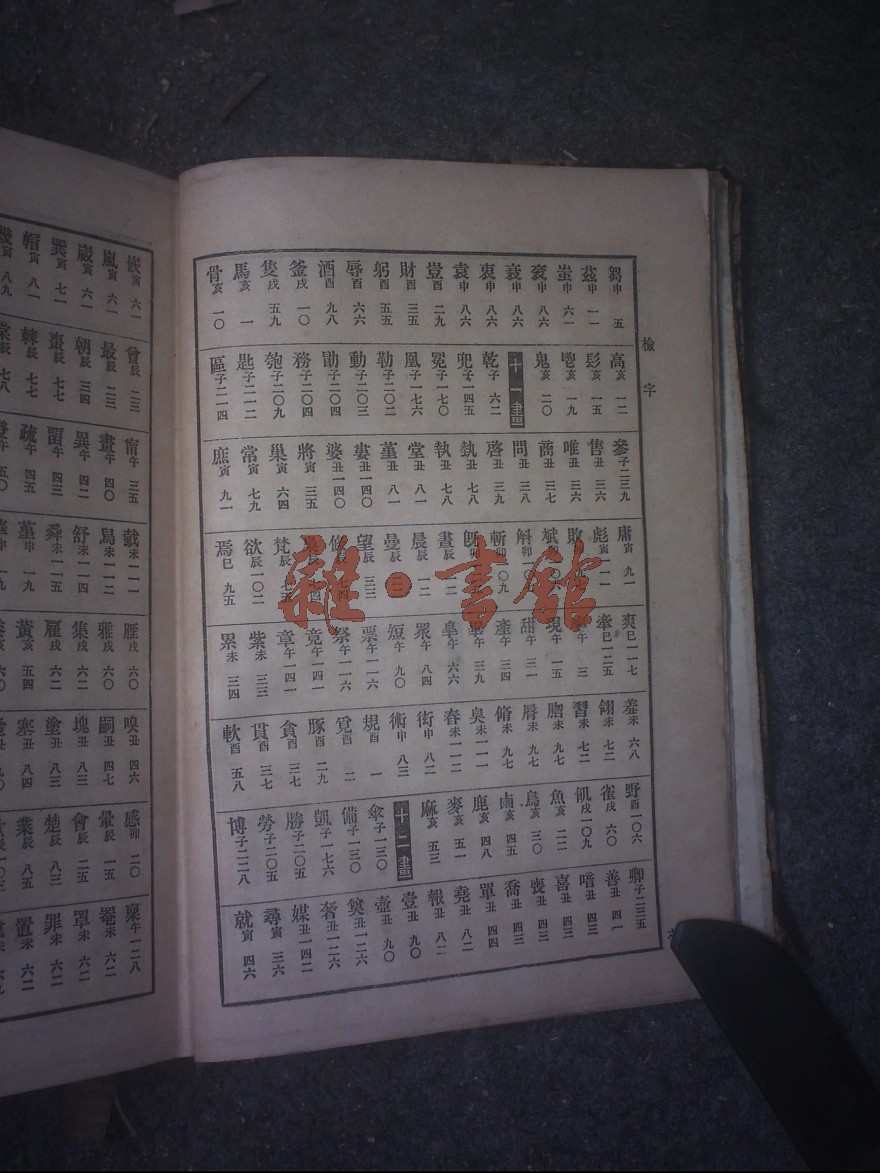 檢字
芻申 五
茲申 一一
蚩申 六一
袞申 八六
衰申 八六
衷申 八六
袁申 八六
豈酉 二九
財酉 三五
躬酉 五五
辱酉 六六
酒酉 九八
釜戌 一〇
隻戌 五九
馬亥 一
骨亥 一〇
高亥 一二
髟亥 一五
鬯亥 一九
鬼亥 二〇
十一畫
乾子 六二
兜子一四五
冕子一七〇
凰子一七六
勒子二〇二
動子二〇三
勖子二〇四
務子二〇四
匏子二〇九
匙子二一二
區子二一四
參子二三九
售丑 三六
唯丑 三六
商丑 三七
問丑 三八
啓丑 三九
埶丑 七八
執丑 七八
堂丑 八一
堇丑 八一
婁丑一四〇
婆丑一四〇
將寅 三五
巢寅 六四
常寅 七九
庶寅 九一
庸寅 九一
彪寅一一一
敗
斌卯
斛卯一〇
斬卯一〇九
旣卯
晝辰 一二
晨辰 一二
曼辰
望辰 三三
條辰
梵辰 七五
欲辰一〇二
焉巳 九五
爽巳一一七
牽巳一二五
現午 一五
甜午 三一
產午 三四
畢午 三九
皋午 六六
眾午 八四
短午 九〇
票午一一六
祭午一一六
竟午一四一
章午一四一
紫未 三三
累未 三四
羞未 六八
翎未 七二
習未 七二
脗未 九七
脣未 九七
脩未 九七
臭未一一一
舂未一一二
術申 八三
規酉 一
覓酉 二
豚酉 二九
貪酉 三七
貫酉 三七
軟酉 五八
野酉一〇六
雀戌 六〇
飢戌一〇九
魚亥 二二
鳥亥 三〇
鹵亥 四五
鹿亥 四八
麥亥 五一
麻亥 五三
十二畫
傘子一三〇
備子一三〇
凱子一七六
勝子二〇五
勞子二〇五
博子二二八
卿子二三五
善丑 四一
喑丑 四三
喜丑 四三
喪丑 四三
喬丑 四三
單丑 四四
堯丑 八二
報丑 八二
壹丑 九〇
壺丑 九〇
奠丑一二六
奢丑一二六
媒丑一四二
尋寅 三六
就寅 四六
嵌寅 六一
嵐寅 六一
崴寅 六一
巽寅 七一
帽寅 八一
幾寅 八九
曾辰 二三
最辰 二三
朝辰 三四
棗辰 七七
棘辰 七七
棠辰 七八
甯午 三五
畫午 四〇
異午 四二
畱午 四三
疏午 四五
登午 五〇
臷未一一一
舄未一一二
舒未一一四
舜未一一五
菫申 一九
雁戌 六〇
雅戌 六〇
集戌 六二
雇戌 六二
黃亥 五四
嗅丑 四六
嗣丑 四七
塊丑 八三
塗丑 八三
塞丑 八四
感卯 二〇
暈辰 一五
會辰 二五
楚辰 八三
業辰 八五
稟午一二八
罨未 六二
罩未 六二
罪未 六二
置未 六二
雜·書館